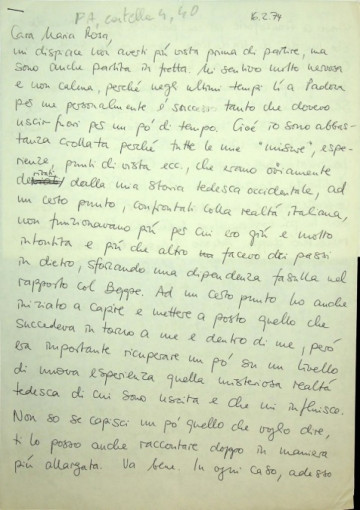 P.A. cartella 4, 40
16.2.74
Cara Maria Rosa,
mi dispiace non averti più vista prima di partire, ma
sono anche partita in fretta. Mi sentivo molto nervosa
e non calma, perché negli ultimi tempi lì a Padova
per me personalmente è successo tanto che dovevo
uscir fuori per un pó di tempo. Cioé io sono abbas-
tanza crollata perché tutte le mie "misure", espe-
rienze, punti di vista ecc., che erano ovviamente
dalla mia storia tedesca occidentale, ad
un certo punto, confrontati colla realtà italiana,
non funzionavano più per cui ero giù e molto
intontita e più che altro facevo dei passi
in dietro, sforzando una dipendenza fasulla nel
rapporto col Beppe. Ad un certo punto ho anche
iniziato a capire e mettere a posto quello che
succedeva in torno a me e dentro di me, però
era importante ricuperare un pó su un livello
di nuova esperienza quella misteriosa realtà
tedesca di cui sono uscita e che mi influisce.
Non so se capisci un pó quello che voglio dire,
ti lo posso anche raccontare doppo in maniera
più allargata. Va bene. In ogni caso, adesso